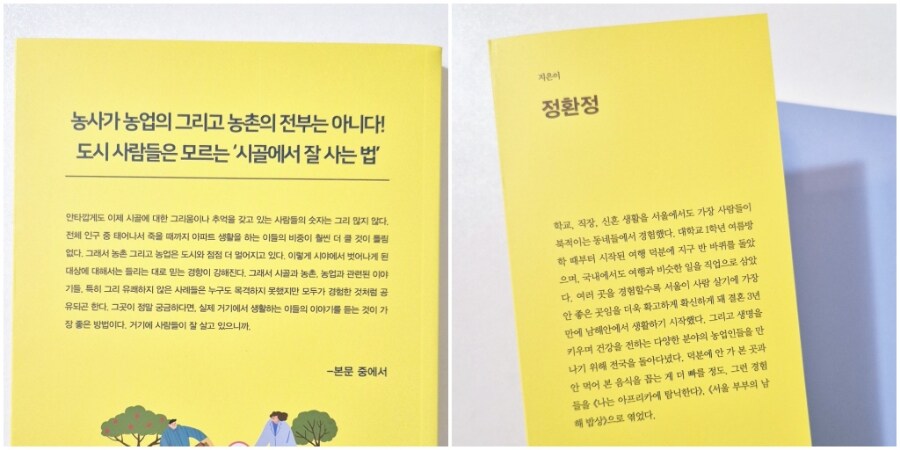 농사가 농업의 그리고 농촌의 전부는 아니다!
도시 사람들은 모르는 ‘시골에서 잘 사는 법’
안타깝게도 이제 시골에 대한 그리움이나 추억을 갖고 있는 사람들의 숫자는 그리 많지 않다.
전체 인구 중 태어나서 죽을 때까지 아파트 생활을 하는 이들의 비중이 훨씬 더 클 것이 틀림
없다. 그래서 농촌 그리고 농업은 도시와 점점 더 멀어지고 있다. 이렇게 시야에서 벗어나게 된
대상에 대해서는 들리는 대로 믿는 경향이 강해진다. 그래서 시골과 농촌, 농업과 관련된 이야
기들, 특히 그리 유쾌하지 않은 사례들은 누구도 목격하지 못했지만 모두가 경험한 것처럼 공
유되곤 한다. 그곳이 정말 궁금하다면, 실제 거기에서 생활하는 이들의 이야기를 듣는 것이 가
장 좋은 방법이다. 거기에 사람들이 잘 살고 있으니까.
–본문 중에서
지은이
정환정
학교, 직장, 신혼 생활을 서울에서도 가장 사람들이
북적이는 동네들에서 경험했다. 대학교 1학년 여름방
학 때부터 시작된 여행 덕분에 지구 반 바퀴를 돌았
으며, 국내에서도 여행과 비슷한 일을 직업으로 삼았
다. 여러 곳을 경험할수록 서울이 사람 살기에 가장
안 좋은 곳임을 더욱 확고하게 확신하게 돼 결혼 3년
만에 남해안에서 생활하기 시작했다. 그리고 생명을
키우며 건강을 전하는 다양한 분야의 농업인들을 만
나기 위해 전국을 돌아다녔다. 덕분에 안 가 본 곳과
안 먹어 본 음식을 꼽는 게 더 빠를 정도. 그런 경험
들을 《나는 아프리카에 탐닉한다》, 《서울 부부의 남
해 밥상》으로 엮었다.